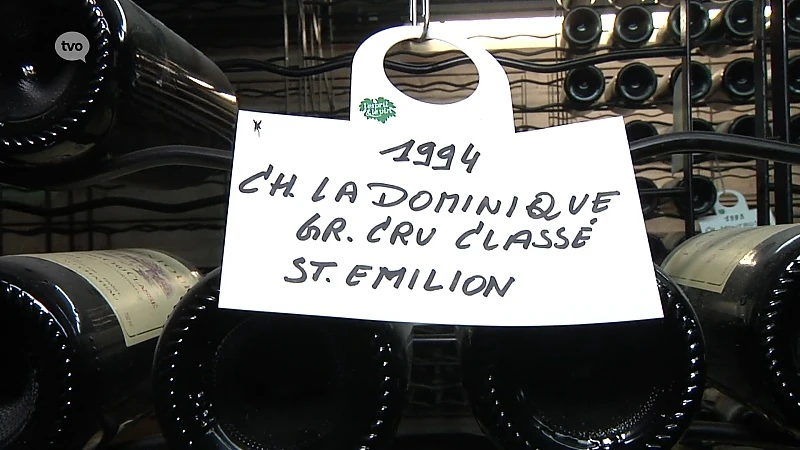 tvo
1994
CH. LA DOMINIQUE
GR. CRU CLASSÉ
ST. EMILION